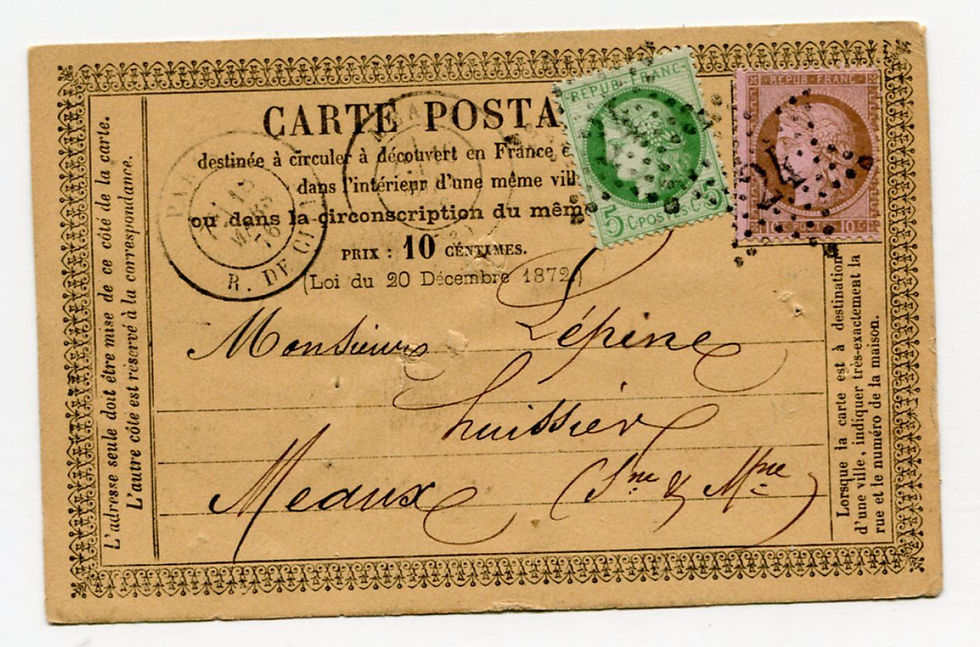 CARTE POSTA
destinée à circuler à découvert en France e
dans l'intérieur d'une même vill
ou dans la circonscription du même
PRIX : 10 CENTIMES.
(Loi du 20 Décembre 1872.)
R. DE CL
MARS
76
REPUB. FRANC.
5 C. POSTES. 5 C.
REPUB. FRANC.
10 C. 10 C.
24
Monsieur Lépine
huissier
Meaux (Sne & Mne)
L'adresse seule doit être mise de ce côté de la carte.
L'autre côté est réservé à la correspondance.
Lorsque la carte est à destination
d'une ville, indiquer très-exactement la
rue et le numéro de la maison.